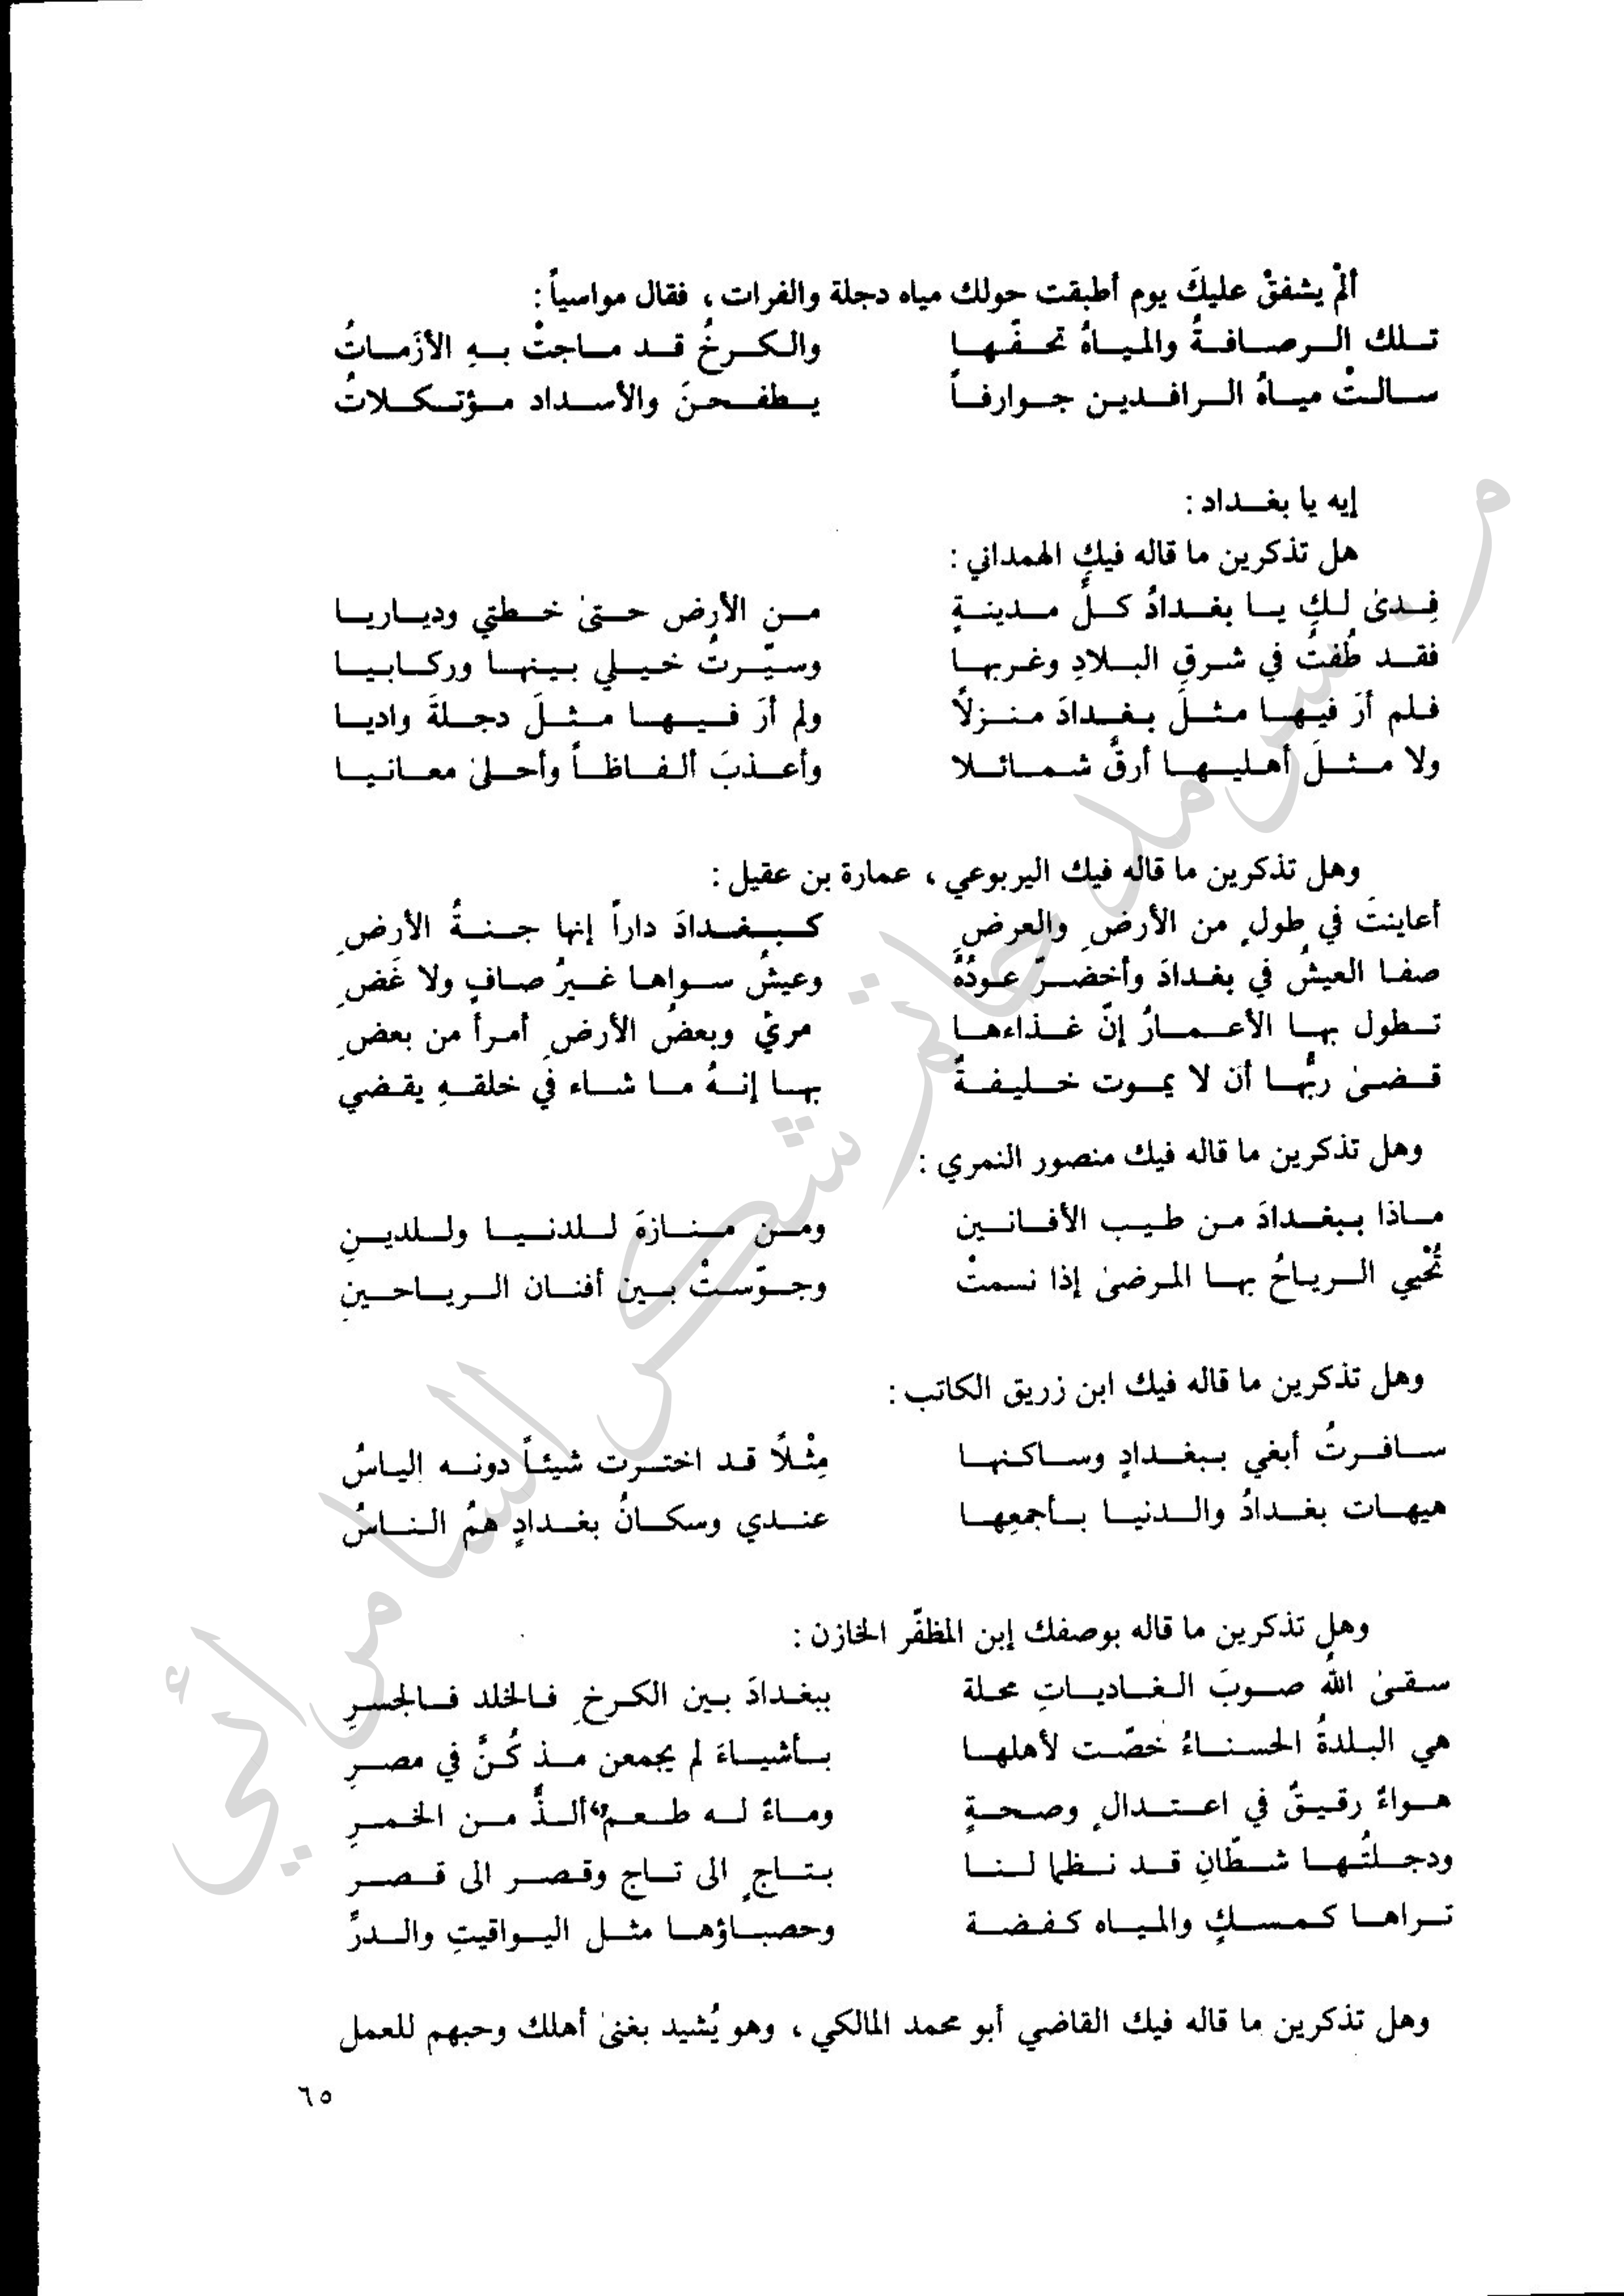 ألمْ يشفقْ عليكَ يوم أطبقت حولك مياه دجلة والفرات ، فقال مواسياً :
تلك الرصافةُ والمياهُ تحفّها والكرخُ قد ماجتْ بهِ الأزَماتُ
سالتْ مياهُ الرافدين جوارفاً يطفحنَ والأسداد مؤتكلاتُ
إيه يا بغداد :
هل تذكرين ما قاله فيكِ الهمداني :
فِدىٰ لكِ يا بغدادُ كلُّ مدينةٍ من الأرضِ حتىٰ خطتي ودياريا
فقد طُفتُ في شرقِ البلادِ وغربها وسيّرتُ خيلي بينها وركابيا
فلم أرَ فيها مثلَ بغدادَ منزلاً ولم أرَ فيها مثلَ دجلةَ واديا
ولا مثلَ أهليها أرقَّ شمائلا وأعذبَ ألفاظاً وأحلىٰ معانيا
وهل تذكرين ما قاله فيك اليربوعي ، عمارة بن عقيل :
أعاينتَ في طولٍ من الأرضِ والعرضِ كبغدادَ داراً إنها جنةُ الأرضِ
صفا العيشُ في بغدادَ وأخضرّ عودُهُ وعيشُ سواها غيرُ صافٍ ولا غَضِ
تطول بها الأعمارُ إنّ غذاءها مريءٌ وبعضُ الأرضِ أمرأ من بعضِ
قضىٰ ربُّها أن لا يموت خليفةٌ بها إنهُ ما شاء في خلقهِ يقضي
وهل تذكرين ما قاله فيك منصور النمري :
ماذا ببغدادَ من طيب الأفانين ومن منازهَ للدنيا وللدينِ
تُحْيي الرياحُ بها المرضىٰ إذا نسمتْ وجوّستْ بين أفنان الرياحينِ
وهل تذكرين ما قاله فيك ابن زريق الكاتب :
سافرتُ أبغي ببغدادٍ وساكنها مِثْلاً قد اخترت شيئاً دونه الياسُ
هيهات بغدادُ والدنيا بأجمعِها عندي وسكانُ بغدادٍ همُ الناسُ
وهل تذكرين ما قاله بوصفك إبن المظفّر الخازن :
سقىٰ اللهُ صوبَ الغادياتِ محلة ببغدادَ بين الكرخِ فالخلد فالجسرِ
هي البلدةُ الحسناءُ خصّت لأهلها بأشياءَ لم يجمعن مذ كُنَّ في مصرِ
هواءٌ رقيقٌ في اعتدالٍ وصحةٍ وماءٌ له طعم ألذُّ من الخمرِ
ودجلتُها شطّانِ قد نظما لنا بتاجٍ الى تاج وقصر الى قصر
تراها كمسكٍ والمياه كفضة وحصباؤها مثل اليواقيتِ والدرِّ
وهل تذكرين ما قاله فيك القاضي أبو محمد المالكي ، وهو يُشيد بغنىٰ أهلك وحبهم للعمل
٦٥